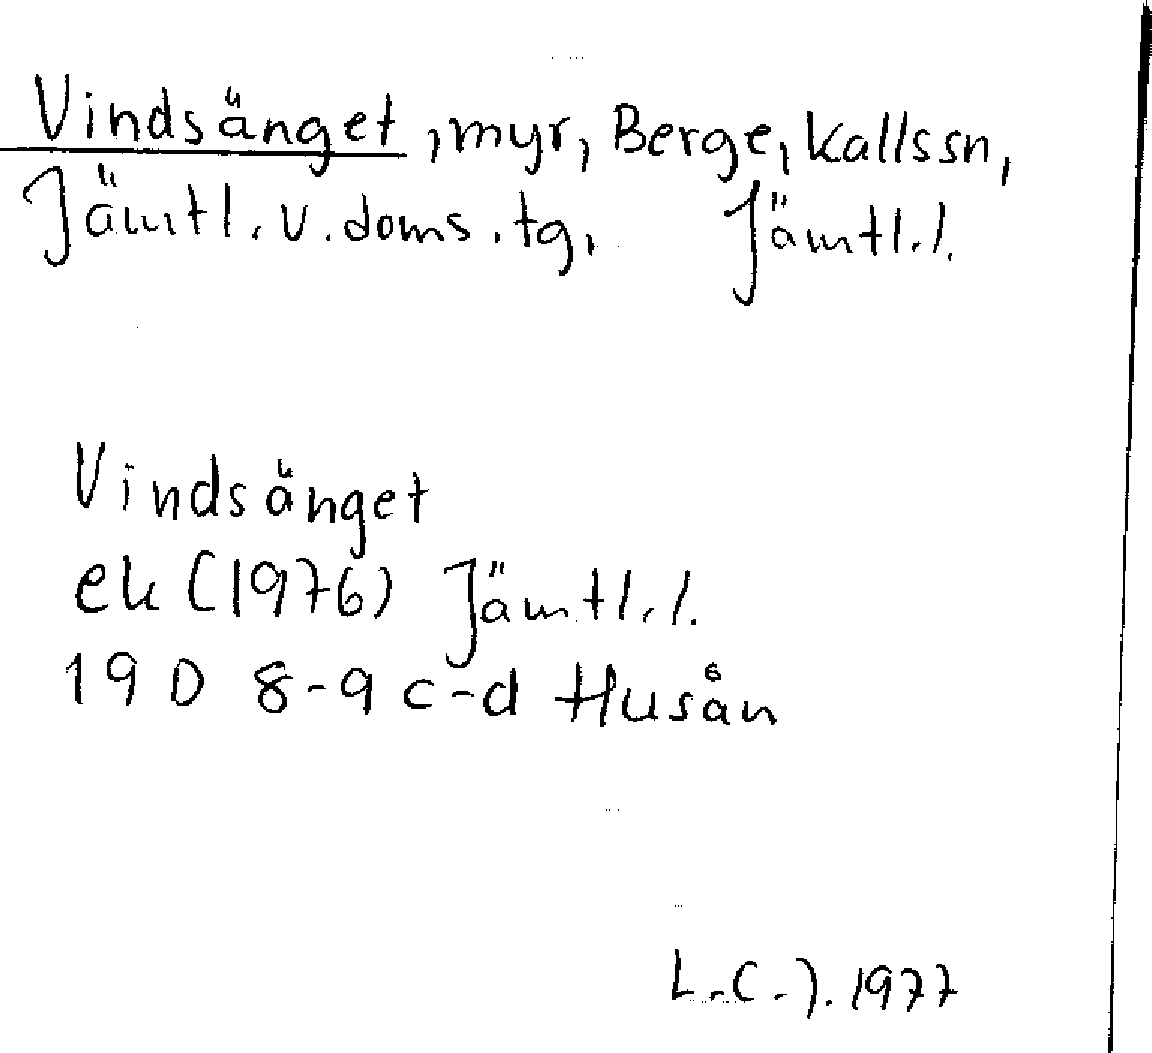 Vindsänget, myr, Berge, Kallssn,
Jämtl. v. doms. tg, Jämtl. l.
Vindsänget
ek (1976) Jämtl. l.
19 D 8-9 c-d Husån
L.C.J. 1977